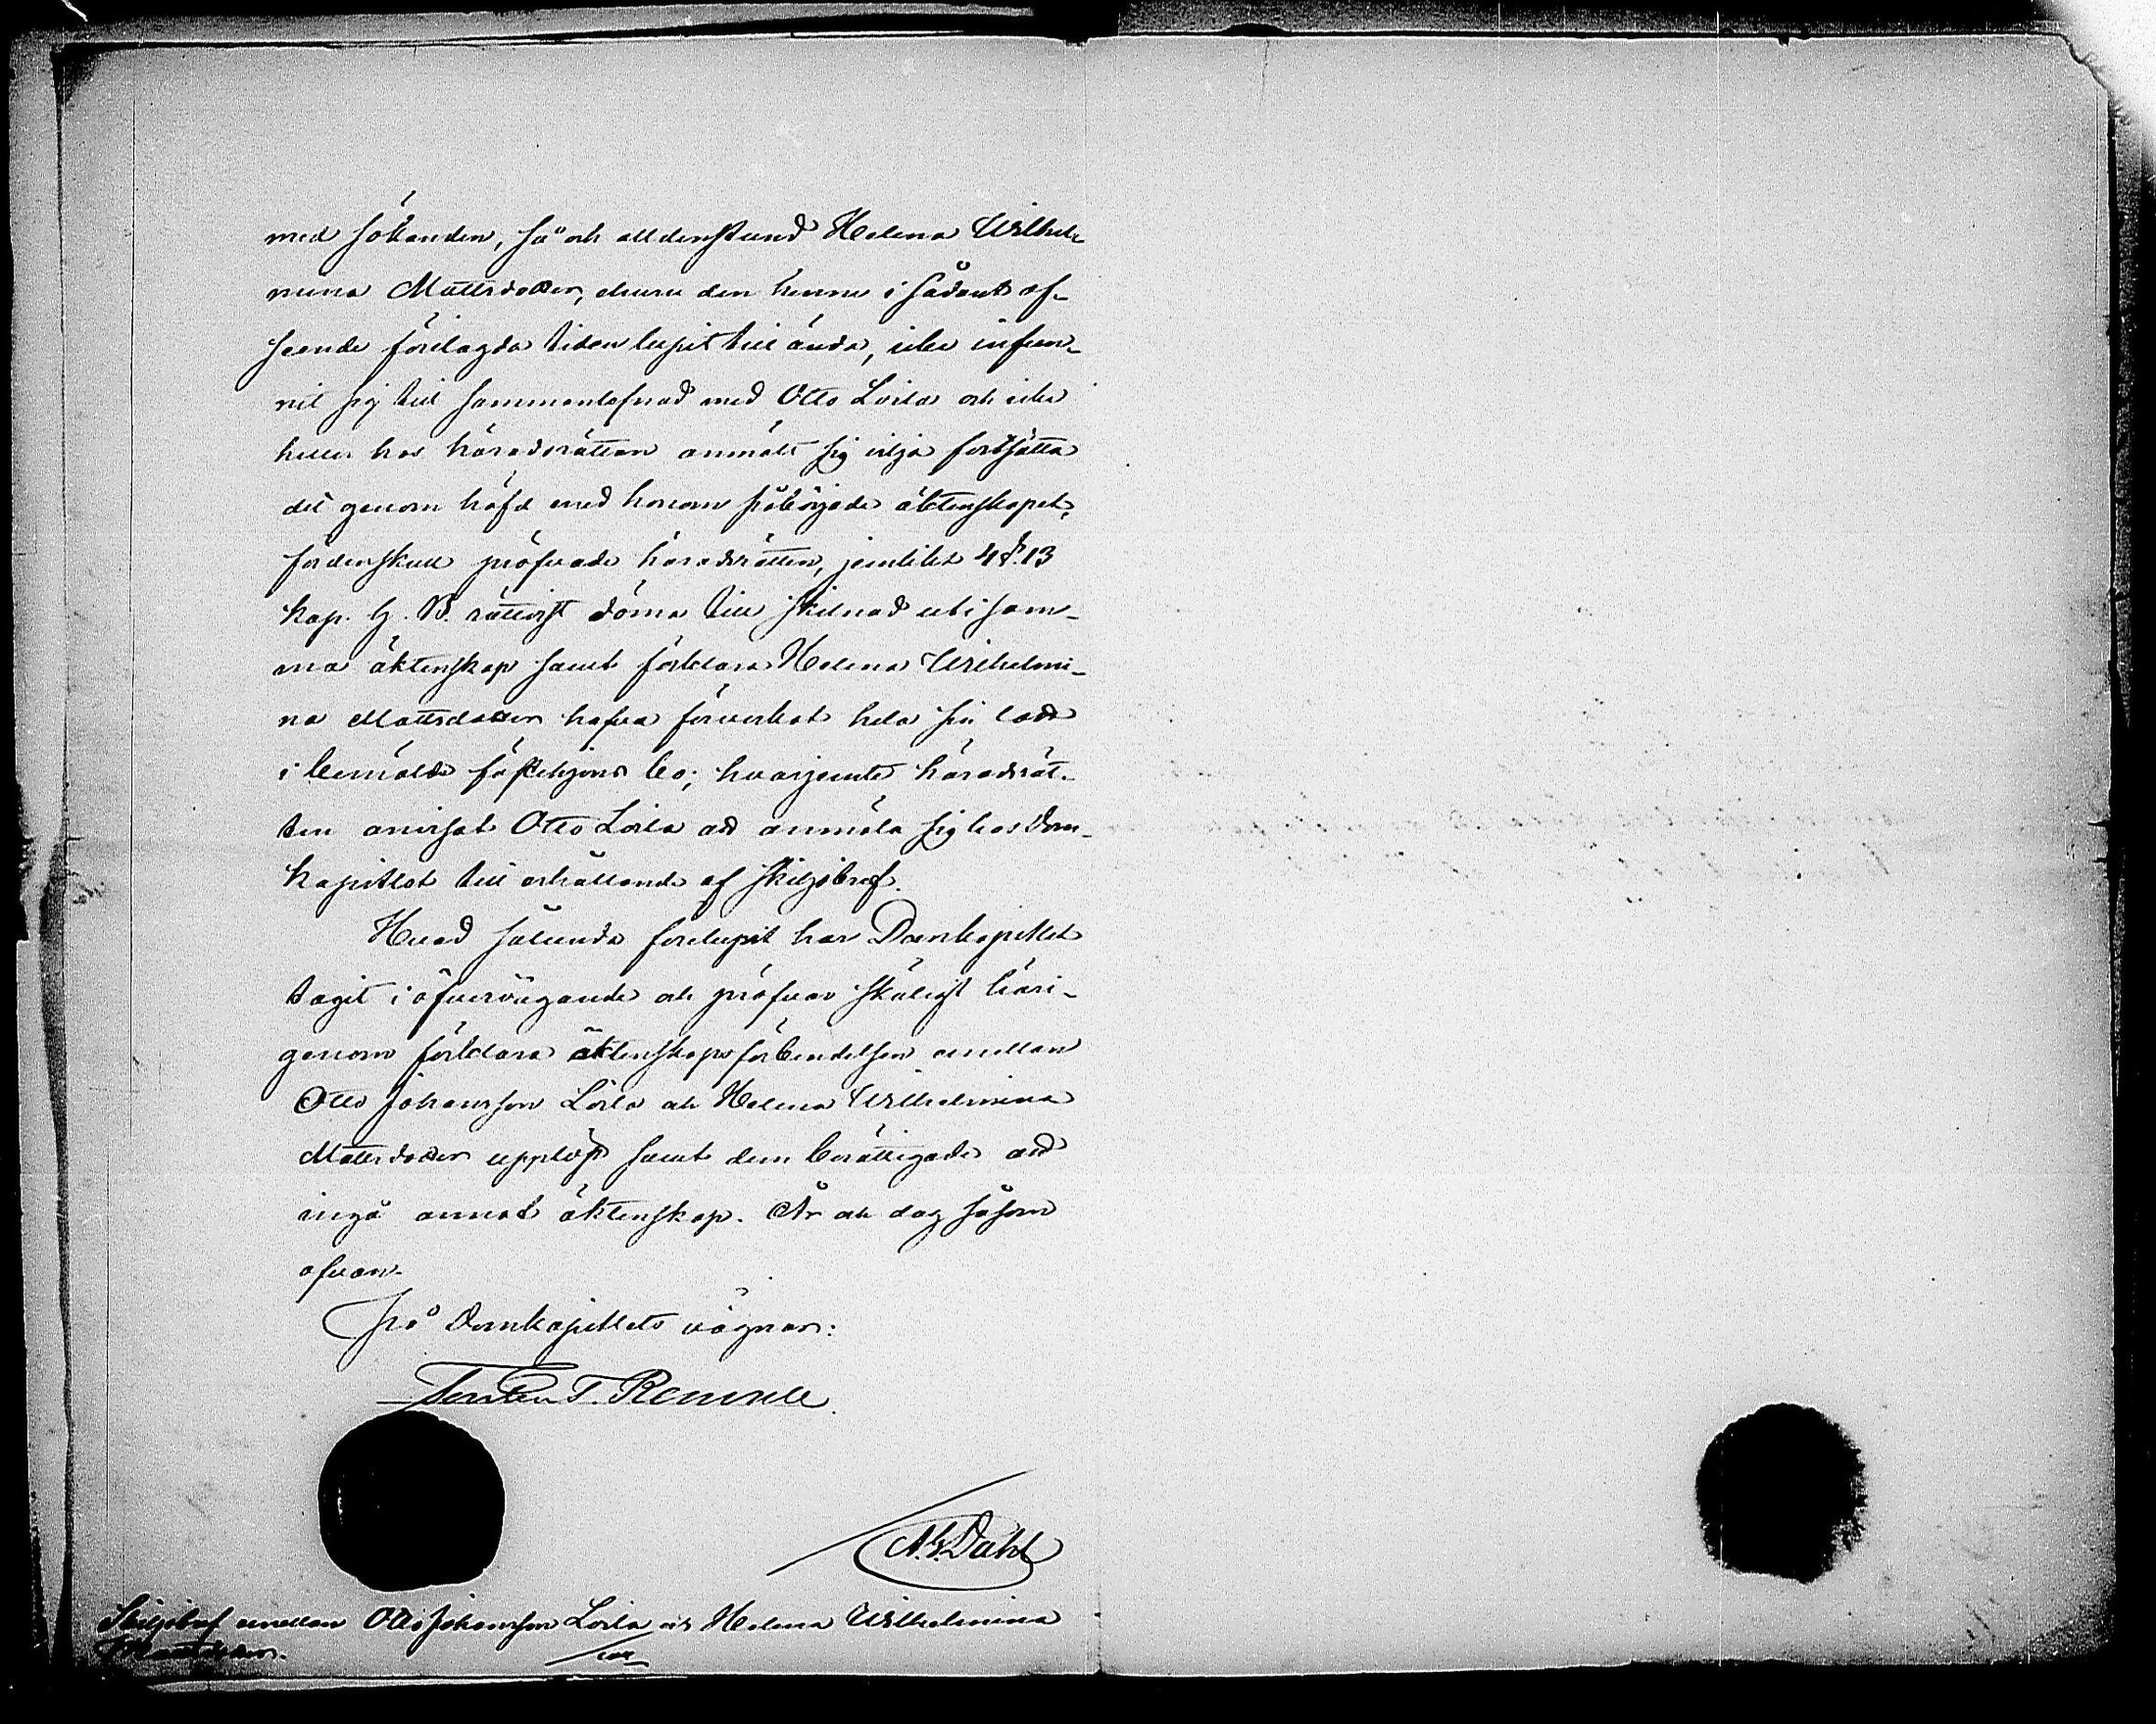 med sökanden, så och alldenstund Helena Wilhel-
mina Mattsdotter, ehuru den henne i sådant af-
seende förelagda tiden lupit till ända, icke infun-
nit sig till sammanlefnad med Otto Loila och icke
heller hos häradsrätten anmält sig vilja fortsätta
det genom häfd med honom påbörjade äktenskapet,
fördenskull pröfvade häradsrätten, jemlikt 4 §. 13
Kap. G. B. rättvist döma till skilnad uti sam-
ma äktenskap samt förklara Helena Wilhelmi-
na Mattsdotter hafva förverkat hela sin lott
i bemälde fästehjons bo; hvarjemte häradsrät-
ten anvisat Otto Loila att anmäla sig hos Dom-
kapitlet till erhållande af skiljobref.
Hvad sålunda förelupit har Domkapitlet
tagit i öfvervägande och pröfvar skäligt häri-
genom förklara äktenskapsförbindelsen emellan
Otto Johansson Loila och Helena Wilhelmina
Mattsdotter upplöst samt dem berättigade att
ingå annat äktenskap. År och dag såsom
ofvan.
På Domkapitlets vägnar:
Torsten T. Renvall.
Dahl
Skiljobref emellan Otto Johansson Loila och Helena Wilhelmina
Mattsdotter.